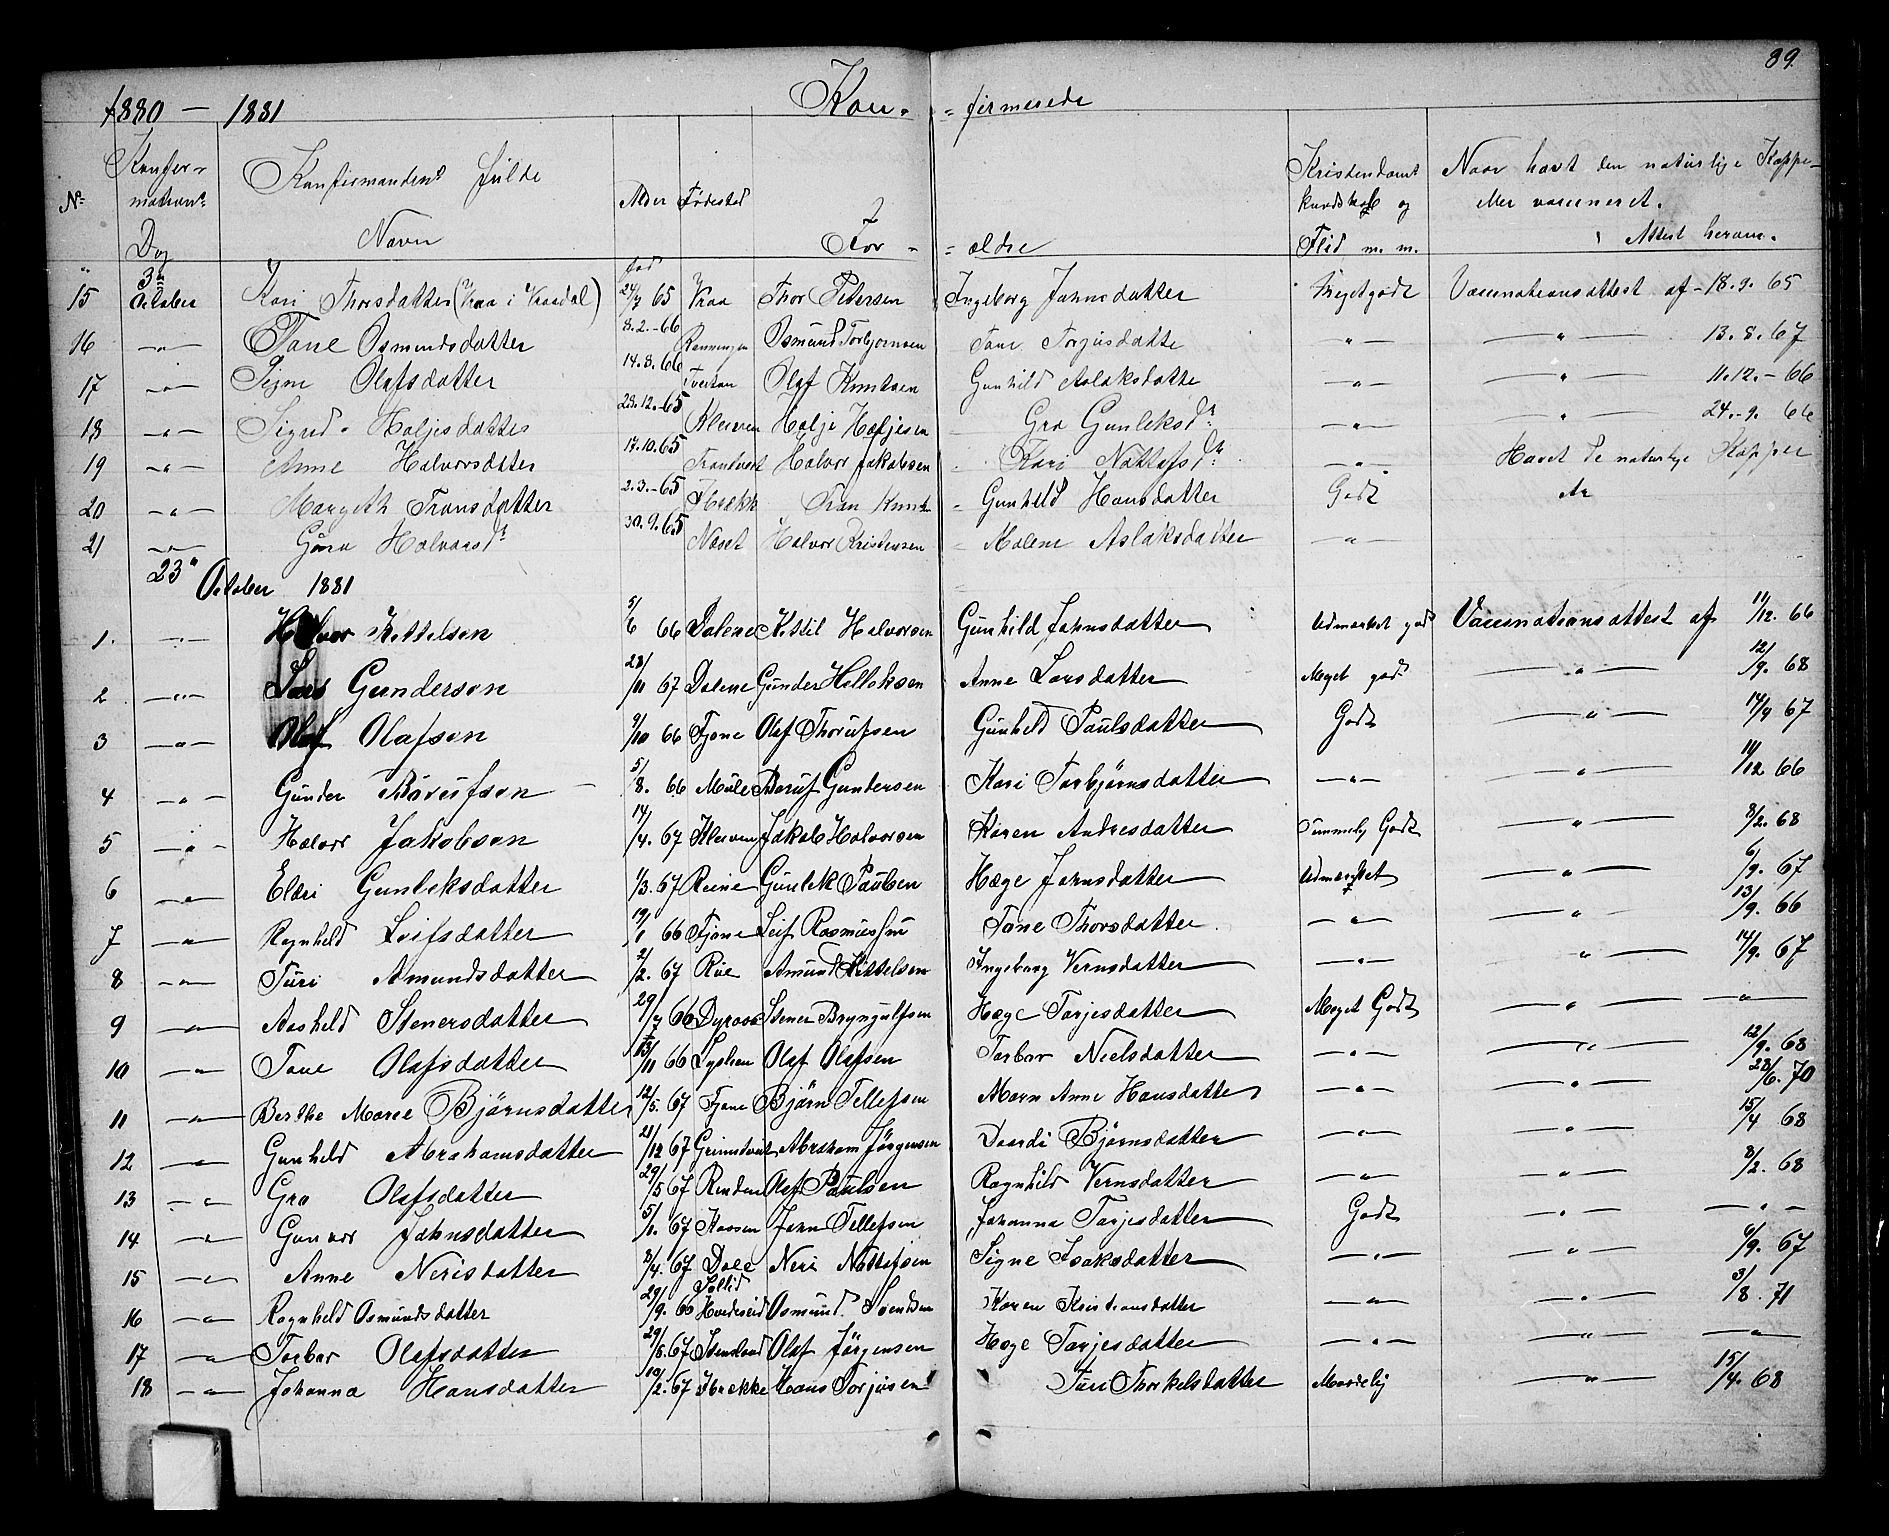 89.
1880 — 1881 Kon- = firmerede
No Konfirmations Dag Konfirmandens fulde Navn Alder Fødested For- = ældre Kristendoms kundskab og Flid m. m. Naar havt den naturlige Kopper eller vaccineret. Attest herom.
15 3 October Kari Thorsdatter (Kraa i Kraadal) fød 24/7 65 Kraa Thor Petersen Ingeborg Jahnsdatter Meget godt Vaccinationsattest af 18.9.65
16 —"— Tone Osmundsdatter 8.2.-66 Rønningen Osmund Torbjørnsen Tone Torjusdatter —"— —"— 13.8.67
17 —"— Signe Olafsdatter 14.8.66 Tveitan Olaf Knutsen Gunhild Aslaksdatter —"— —"— 11.12.-66
18 —"— Sigrid Haljesdatter 28.12.-65 Kleiven Halje Haljesen Gro Gunleksdr —"— —"— 24.-9. 66
19 —"— Anne Halvorsdatter 17.10.65 Halvor Jakobsen Kari Nottofsdr —"— Havt De naturlige Kopper
20 —"— Margith Transdatter 2.3.-65 Brække Tran Knut Gunhild Hansdatter Godt
21 —"— Guro Halvorsdr 30.9.65 Næset Halvor Kristensen Malene Aslaksdatter —"—
23" October 1881
1. —"— Halvor Kittelsen 5/6 66 Dalene Kittil Halvorsen Gunhild Jahnsdatter Udmærket godt Vaccinationsattest af 11/12. 66
2 —"— Lars Gundersen 28/11 67 Dalene Gunder Helleksen Anne Larsdatter Meget godt —"— 12/9. 68
3 —"— Olaf Olafsen 9/10 66 Fjone Olaf Thorufsen Gunhild Paulsdatter Godt —"— 14/9 67
4 —"— Gunder Børufsen 5/8. 66 Mule Børuf Gundersen Kari Torbjørnsdatter —"— —"— 11/12 66
5 —"— Halvor Jakobsen 14/4. 67 Kleiven Jakob Halvorsen Karen Andresdatter Temmelig Godt —"— 8/2. 68
6 —"— Eldri Gunleksdatter 1/3. 67 Reine Gunlek Paulsen Hæge Jahnsdatter Udmærket —"— 6/9. 67
7 —"— Ragnhild Leifsdatter 19/1 66 Fjone Leif Rasmussen Tone Thorsdatter —"— —"— 13/9. 66
8 —"— Turi Amundsdatter 2/2. 67 Roe Amund Kittelsen Ingeborg Vernsdatter —"— —"— 14/9. 67
9 —"— Aashild Stenersdatter 29/7 66 Stener Bryngulfsen Hæge Torjesdatter Meget Godt —"— —"—
10 —"— Tone Olafsdatter 13/11 66 Olaf Olafsen Torbor Nielsdatter —"— —"— 12/9. 68
11 —"— Berthe Marie Bjørnsdatter 12/5. 67 Fjone Bjørn Tellefsen Maren Anne Hansdatter —"— —"— 28/6. 70
12 —"— Gunhild Abrahamsdatter 21/12 67 Grimstveit Abraham Jørgensen Daardi Bjørnsdatter —"— —"— 15/4 68
13 —"— Gro Olafsdatter 29/5 67 Rinden Olaf Paulsen Ragnhild Vernsdatter —"— —"— 8/2. 68
14 —"— Gunvor Jahnsdatter 5/1. 67 Kaasen Jahn Tellefsen Johanna Torjesdatter Godt —"— —"—
15 —"— Anne Nerisdatter 8/4. 67 Dale Neri Nottofsen Signe Isaksdatter —"— —"— 6/9. 67
16 —"— Ragnhild Osmundsdatter 29/9. 66 Sollid Hvideseid Osmund Svendsen Karen Kristiansdatter —"— —"— 3/8. 71
17 —"— Torbor Olafsdatter 29/8. 67 Stensland Olaf Jørgensen Hæge Torjesdatter —"— —"— —"—
18 —"— Johanna Hansdatter 10/2. 67 Brække Hans Torjusen Turi Thorkelsdatter Maadelig —"— 15/4. 68